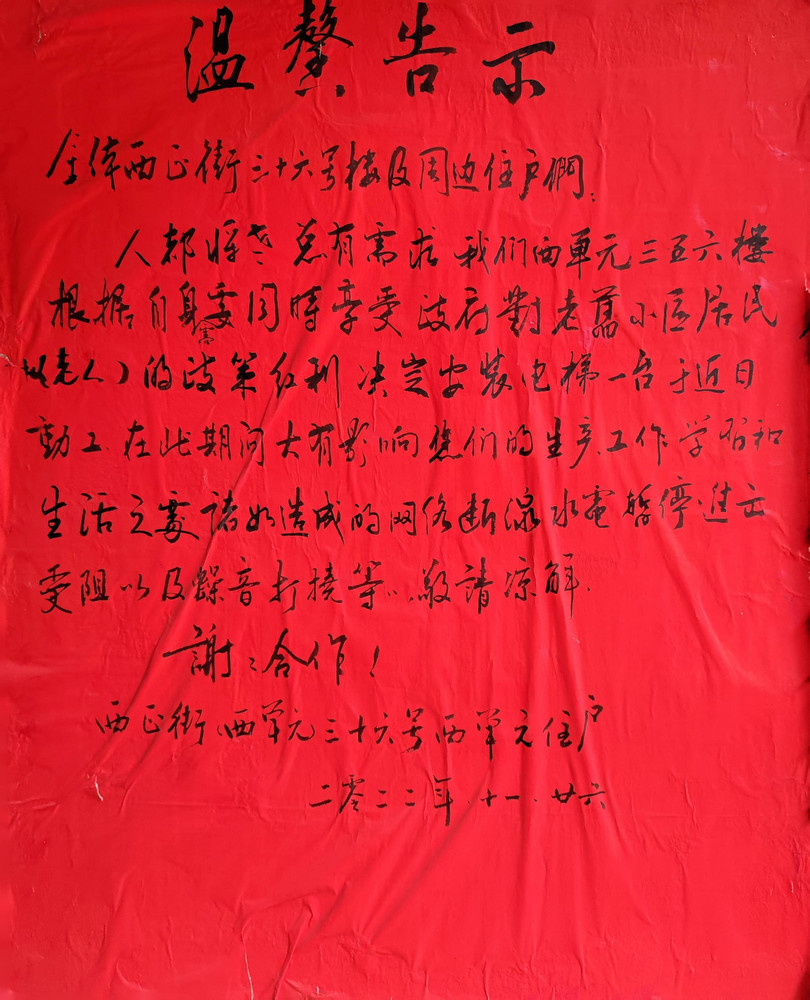 温馨告示
全体西正街三十六号楼及周边住户們:
人都将老总有需求我们西单元三五六楼
根据自身需要同時享受政府對老舊小区居民
(老人)的政策红利决定安装电梯一台于近日
動工.在此期间大有影响您们的生产、工作学習和
生活之處諸如造成的网络断線水電暫停進出
受阻以及噪音打撓等...敬請凉解.
謝:合作!
西正街西单元三十六号西单元住户
二零二二年.十一.廿六